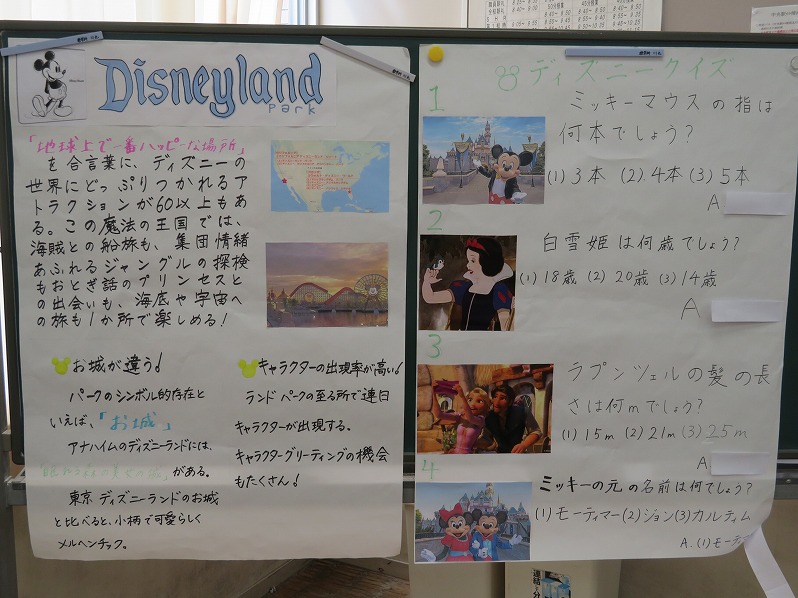 Disneyland
Park
「地球上で一番ハッピーな場所」
を合言葉に、ディズニーの
世界にどっぷりつかれるア
トラクションが60以上もあ
る。この魔法の王国では、
海賊との船旅も、集団情緒
あふれるジャングルの探検
もおとぎ話のプリンセスと
の出会いも、海底や宇宙へ
の旅も1か所で楽しめる!
お城が違う!
パークのシンボル的存在と
いえば、「お城」
アナハイムのディズニーランドには、
「眠れる森の美女の城」がある。
東京ディズニーランドのお城
と比べると、小柄で可愛らしく
メルヘンチック。
キャラクターの出現率が高い!
ランドパークの至る所で連日
キャラクターが出現する。
キャラクターグリーティングの機会
もたくさん!
ディズニークイズ
1
ミッキーマウスの指は
何本でしょう?
(1)3本 (2)4本 (3)5本
A
2
白雪姫は何歳でしょう?
(1)18歳 (2)20歳 (3)14歳
A
3
ラプンツェルの髪の長
さは何mでしょう?
(1)15m (2)21m (3)25m
A
4
ミッキーの元の名前は何でしょう?
(1)モーティマー(2)ジョン(3)カルティム
A.(1)モーティ